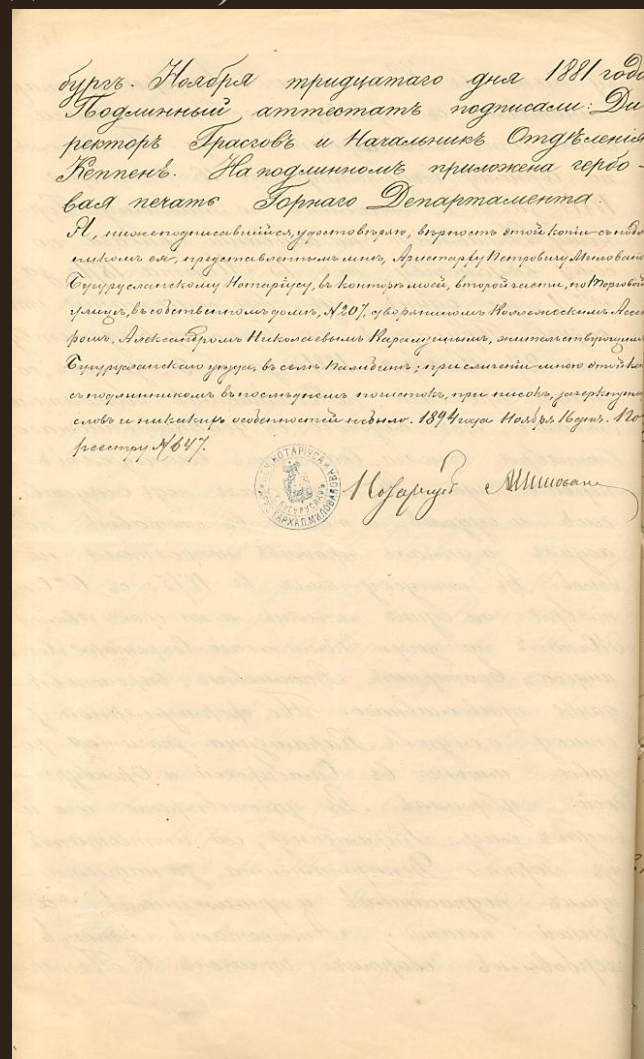 бургъ. Ноября тридцатаго дня 1881 года
Подлинный аттестатъ подписали: Ди-
ректоръ Грасгофъ и Начальникъ Отдѣленія
Кеппенъ. На подлинномъ приложена гербо-
вая печать Горнаго Департамента.
Я, нижеподписавшійся, удостовѣряю, вѣрность этой копіи съ подлин
никомъ ея, представленнымъ мнѣ, Аристарху Петровичу Милованову
Бугурусланскому Нотаріусу, въ конторѣ моей, второй части, по Торговой
улицѣ, въ собственномъ домѣ, №207, дворяниномъ Коллежскимъ Ассесо
ромъ, Александромъ Николаевымъ Карамзинымъ, жительствующимъ
Бугурусланскаго уѣзда, въ селѣ; при сличеніи мною этой копіи
съ подлинникомъ въ послѣднемъ почистокъ, приписокъ, зачеркнутыхъ
словъ и никакихъ особенностей не было. 1894 года Ноября 16 дня. По
реестру №647.
ПЕЧ. НОТАРІУСА АРИСТАРХА П. МИЛОВАНОВА
БУГУРУСЛАНЪ
Нотаріусъ АМиловано